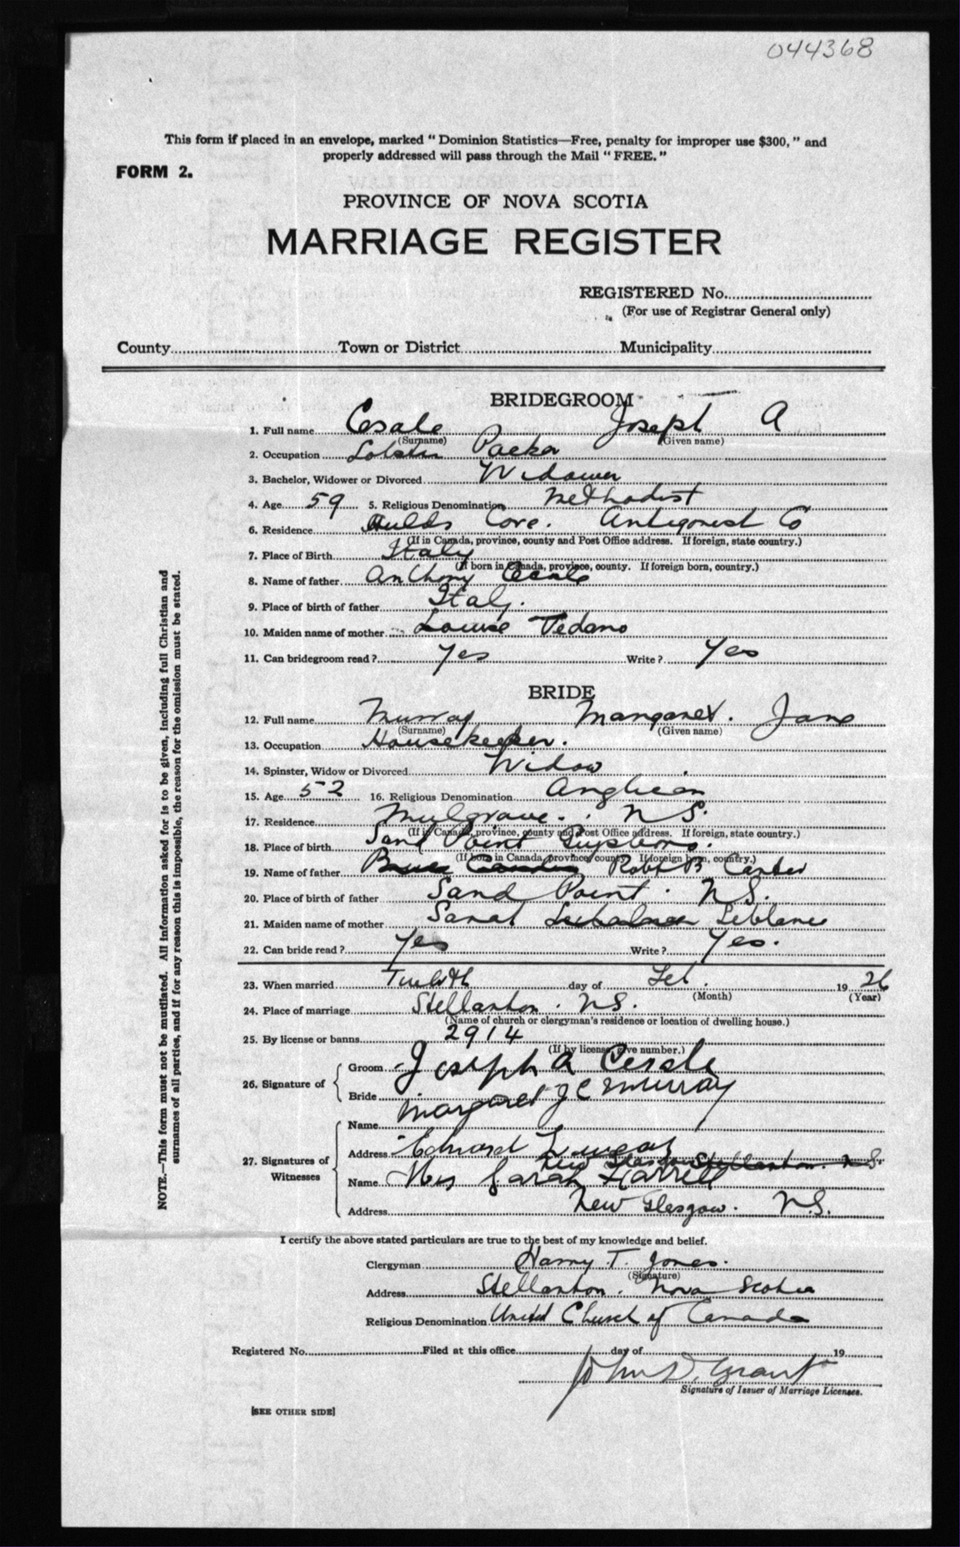 044368
This form if placed in an envelope, marked "Dominion Statistics—Free, penalty for improper use $300," and
properly addressed will pass through the Mail "FREE."
FORM 2.
PROVINCE OF NOVA SCOTIA
MARRIAGE REGISTER
REGISTERED No.
(For use of Registrar General only)
County Town or District Municipality
BRIDEGROOM
1. Full name Cesale Joseph A
(Surname) (Given name)
2. Occupation Lobster Packer
3. Bachelor, Widower or Divorced Widower
4. Age 59 5. Religious Denomination Methodist
6. Residence Cove. Antigonish Co
(If in Canada, province, county and Post Office address. If foreign, state country.)
7. Place of Birth Italy
(If born in Canada, province, county. If foreign born, country.)
8. Name of father Anthony Cesale
9. Place of birth of father Italy.
10. Maiden name of mother Louise Tedano
11. Can bridegroom read? Yes Write? Yes
BRIDE
12. Full name Murray Margaret. Jane
(Surname) (Given name)
13. Occupation Housekeeper.
14. Spinster, Widow or Divorced Widow
15. Age 52 16. Religious Denomination Anglican
17. Residence Mulgrave. N S.
(If in Canada, province, county and Post Office address. If foreign, state country.)
18. Place of birth Sand Point Guysboro.
(If born in Canada, province, county. If foreign born, country.)
19. Name of father Robt B Carter
20. Place of birth of father Sand Point. N.S.
21. Maiden name of mother Sarah Leblanc
22. Can bride read? Yes Write? Yes.
23. When married Twelfth day of Feb. 1926
(Month) (Year)
24. Place of marriage Stellarton. N.S.
(Name of church or clergyman's residence or location of dwelling house.)
25. By license or banns 2914
(If by license, give number.)
26. Signature of Groom Joseph A Cesale
Bride Margaret J C Murray
27. Signatures of Witnesses
Name Edward
Address New Glasgow Stellarton. N.S.
Name Mrs Sarah Harrell
Address New Glasgow. N.S.
I certify the above stated particulars are true to the best of my knowledge and belief.
Clergyman Harry T. Jones.
(Signature)
Address Stellarton. Nova Scotia
Religious Denomination United Church of Canada
Registered No. Filed at this office day of 19
John D. Grant
Signature of Issuer of Marriage Licenses.
[SEE OTHER SIDE]
NOTE.—This form must not be mutilated. All information asked for is to be given, including full Christian and
surnames of all parties, and if for any reason this is impossible, the reason for the omission must be stated.